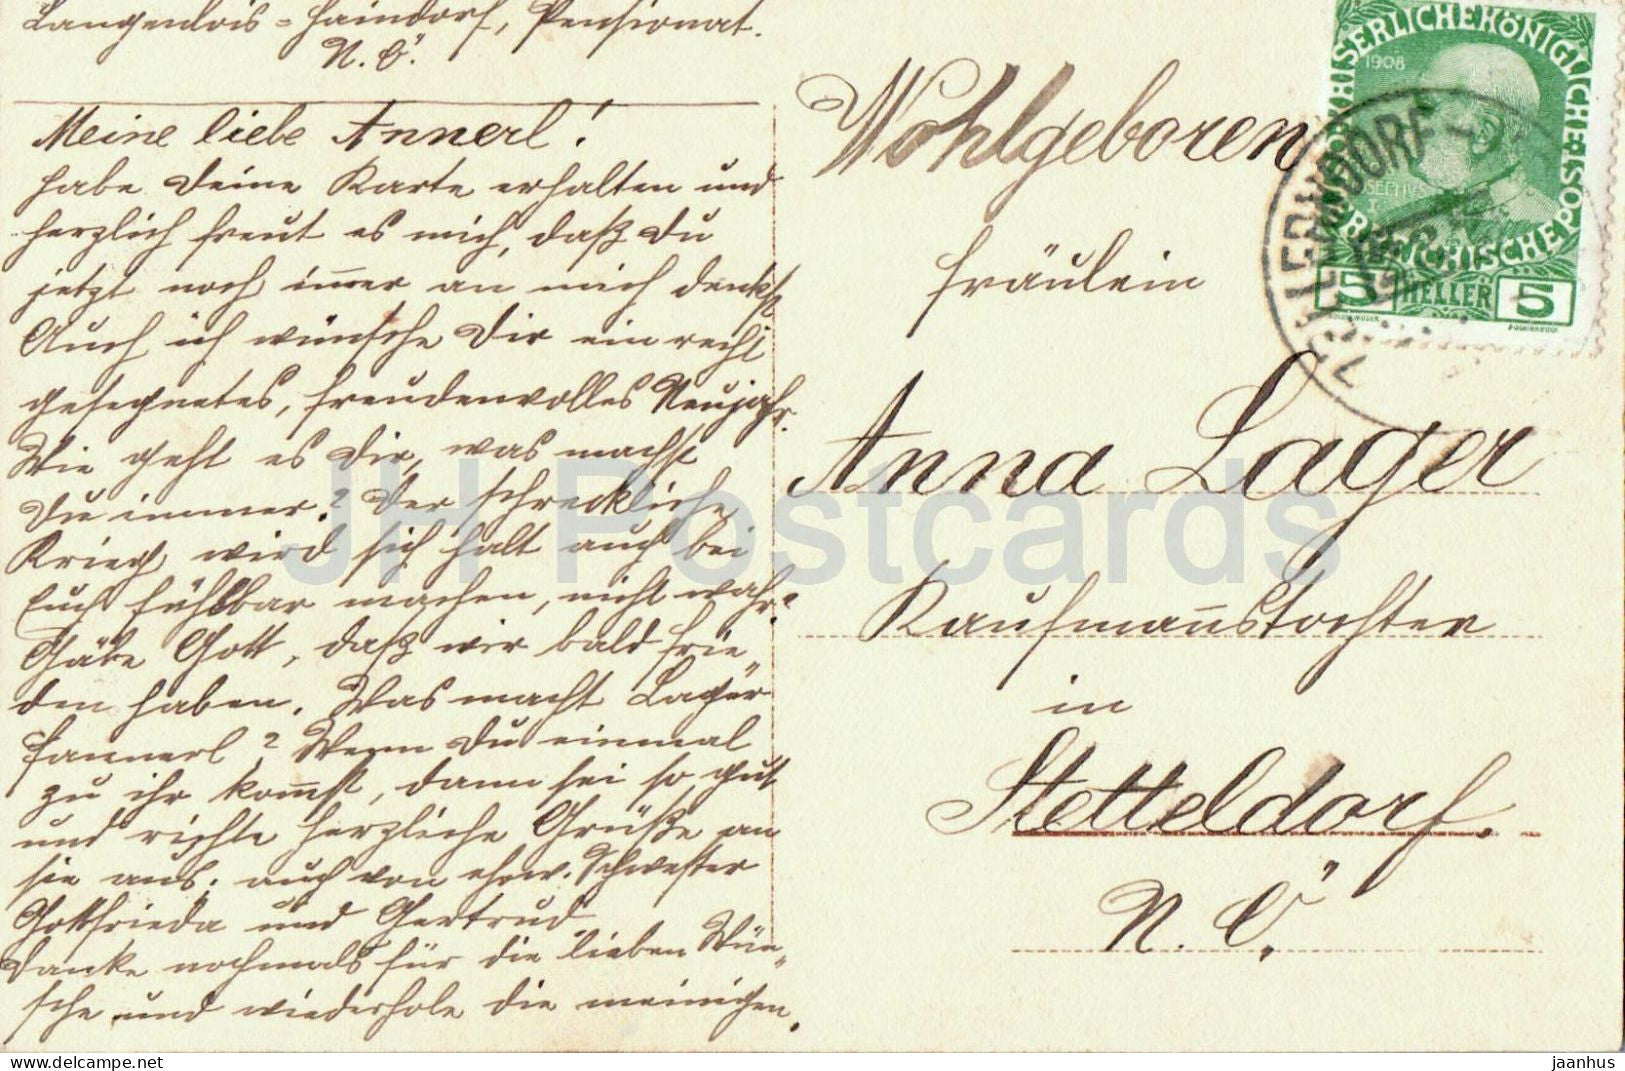 Langenlois = Haindorf, Pensionat.
N. Ö.
Meine liebe Annerl!
habe Deine Karte erhalten und
herzlich freut es mich, daß Du
jetzt noch im̅er an mich denkst.
Auch ich wünsche Dir ein recht
gesegnetes, freudenvolles Neujahr.
Wie geht es Dir, was machst
Du immer? Der schreckliche
Krieg wird sich halt auch bei
Euch fühlbar machen, nicht wahr?
Gäbe Gott, daß wir bald Frie„
den haben. Was macht Lager
Fannerl? Wenn Du einmal
zu ihr kom̅st, dann sei so gut
und richte herzliche Grüße an
sie aus; auch von ehrw. Schwester
Gottfrieda und Gertrud
Danke nochmals für die lieben Wün„
sche und wiederhole die meinigen.
Wohlgeboren
Fräulein
Anna Lager
Kaufman̅stochter
in
Stetteldorf.
N. Ö.
KAISERLICHE KÖNIGLICHE ÖSTERREICHISCHE POST
1908
5 HELLER 5
JH Postcards
delcampe.net
jaanhus